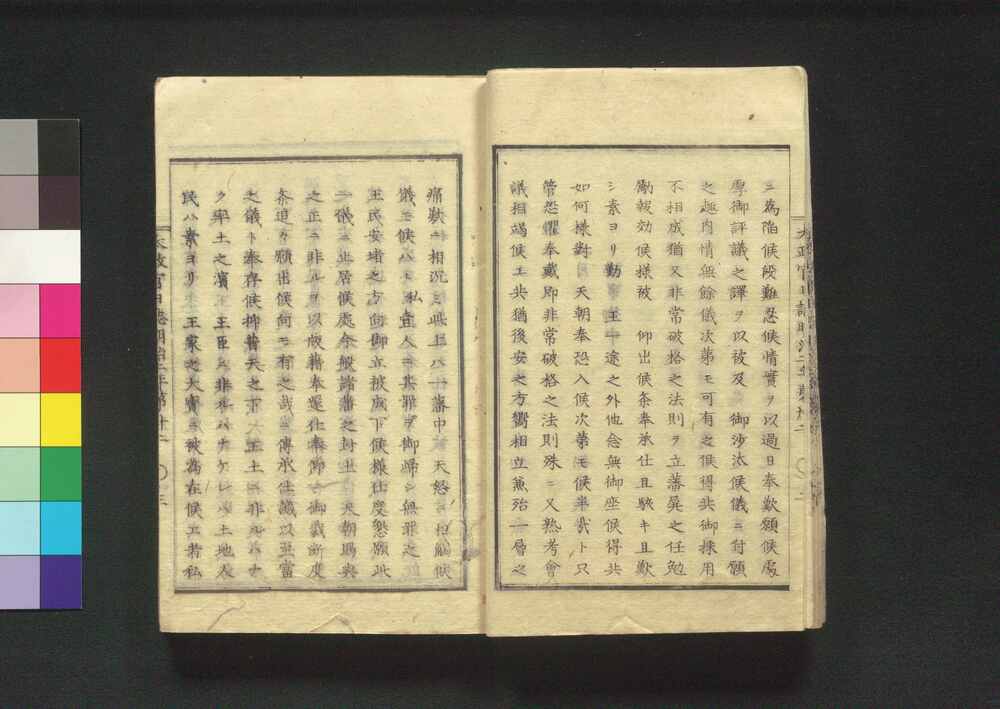 ニ為陥候段難忍候情實ヲ以過日奉歎願候處
厚御評議之譯ヲ以被及 御沙汰候儀ニ付願
之趣内情無餘儀次第モ可有之候得共御採用
不相成猶又非常破格之法則ヲ立藩屏之任勉
勵報効候様被 仰出候条奉承仕且駭キ且歎
シ素ヨリ勤 王一途之外他念無御座候得共
如何様對 天朝奉恐入候次第モ候半哉ト只
管恐懼奉戴即非常破格之法則殊ニ又熟考會
議相竭候エ共猶後安之方嚮相立兼殆一層之
痛歎ニ相沉ミ此上ハ十藩中 天怒ニ相觸候
儀モ候ハヽ私壹人ニ其罪ヲ御歸シ無罪之
王民安堵之方向御立被成下候様仕度懇願此
一儀ニ止居候處今般諸藩之封土 天朝賜與
之正ニ非ルヲ以版籍奉還仕奉仰 御裁断度
条追々願出候向モ有之哉ニ傳承仕誠以至當
之儀ト奉存候抑普天之下 王土ニ非ルハナ
ク率土之濱 王臣ニ非ルハナケレハ土地人
民ハ素ヨリ 王家之大寶ニ被為在候エ若私
太政官日誌明治二年第卅二 〇三